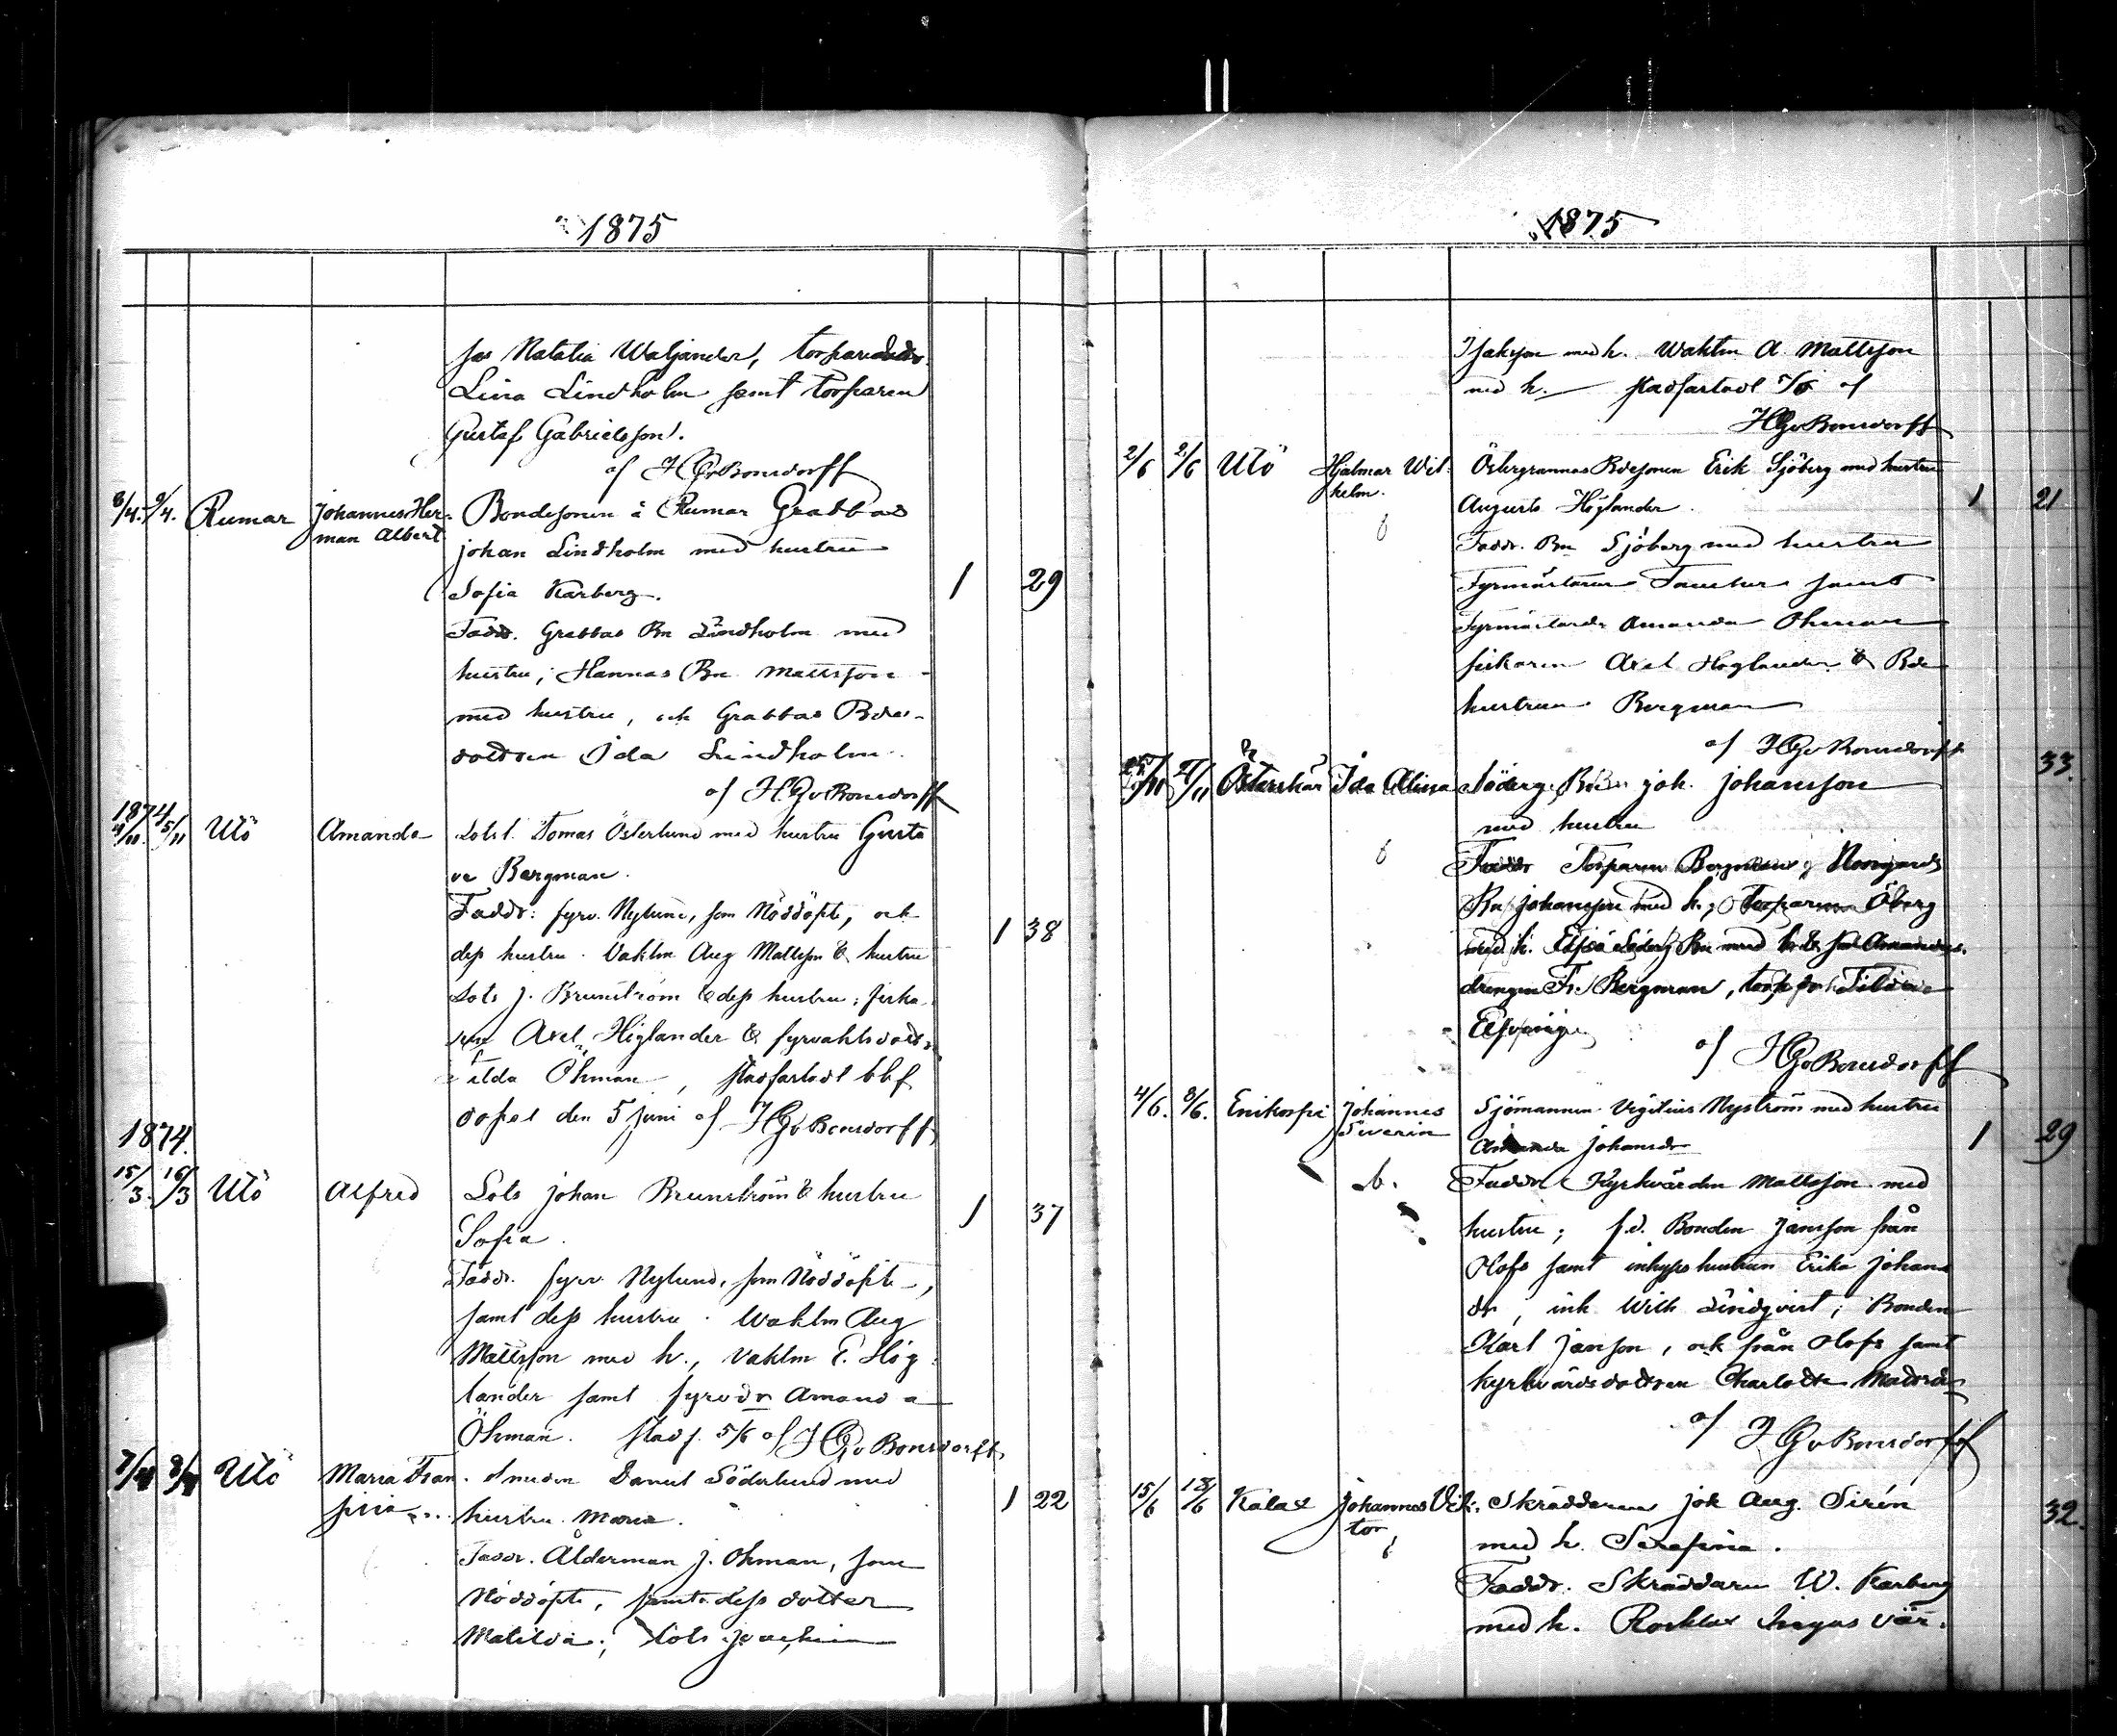 1875
Natalia Waljander, torparedr.
Lina Lindholm samt torparen
Gustaf Gabrielsson.
af HGvBonsdorff
8/4. 9/4. Rumar Johannes Her- Bondesonen å Rumar Grabbas
man Albert Johan Lindholm med hustru
Sofia Karberg. 1 29
Faddr. Grabbas Bn Lindholm med
hustru; Hannas Bn Mattsson
med hustru, och Grabbas Bdes-
dottren Ida Lindholm.
af HGvBonsdorff
1874
4/11 5/11 Utö Amanda Lots l. Tomas Österlund med hustru Gusta
va Bergman.
Faddr: fyrv. Nylund, som Nöddöpte, och 1 38
dess hustru. Vaktm Aug Mattsson & hustru
Lots J. Brunström & dess hustru; fiska-
ren Axel Höglander & fyrvaktsdottr.
Tilda Öhman, stadfästadt
dopet den 5 Juni af HGvBonsdorff
1874.
15/3. 16/3 Utö Alfred Lots Johan Brunström & hustru
Sofia. 1 37
Faddr. fyrv. Nylund, som Nöddöpte,
samt dess hustru. Waktm Aug
Mattsson med h., Vaktm E. Hög
lander samt fyrv dr Amanda
Öhman. stadf. 5/6 af HGvBonsdorff
Utö Maria Fran- Smeden Daniel Söderlund med
sina hustru Maria. 1 22
Faddr. Ålderman J. Öhman, som
Nöddöpte, samt dess dotter
Matilda; Lots Joachim
1875
Isaksson med h. Waktm A. Mattsson
med h. stadfästadt af
HGvBonsdorff
2/6 2/6 Utö Hjalmar Wil- Östergrannas Bdesonen Erik Sjöberg med hustru
helm. Augusta Höglander. 1 21
Faddr. Bn Sjöberg med hustru
Fyrmästaren samt
Fyrmästards Amanda Öhman
fiskaren Axel Höglander & Bde
hustrun Bergman
af HGvBonsdorff
Österskär Ida Alina Söderg. Joh. Johansson 33.
med hustru
Faddr Torparen Bergman; Norrgårds
Bn Johansson med h.; Torparen Öberg
med h. Söderg Bn med h &
drengen Fr. Bergman,
af HGvBonsdorff
4/6. 8/6. Enikorpi Johannes Sjömannen Vigilius Nyström med hustru
Siverin Amanda Johansdr 1 29
b. Faddr. Kyrkvärden Mattsson med
hustru; f.d. Bonden Jansson från
Olofs samt inhyses hustrun Erika Johans
dr, inh Wilh Lindqvist; Bonden
Karl Janson, ock från Olofs samt
kyrkvärdsdottren Charlotta
af HGvBonsdorff
15/6 18/6 Kälax Johannes Vik- Skräddaren Joh Aug. Sirén
tor med h. Serafina. 32.
Faddr. Skräddaren W. Karberg
med h. Rocklax Ingas vär-